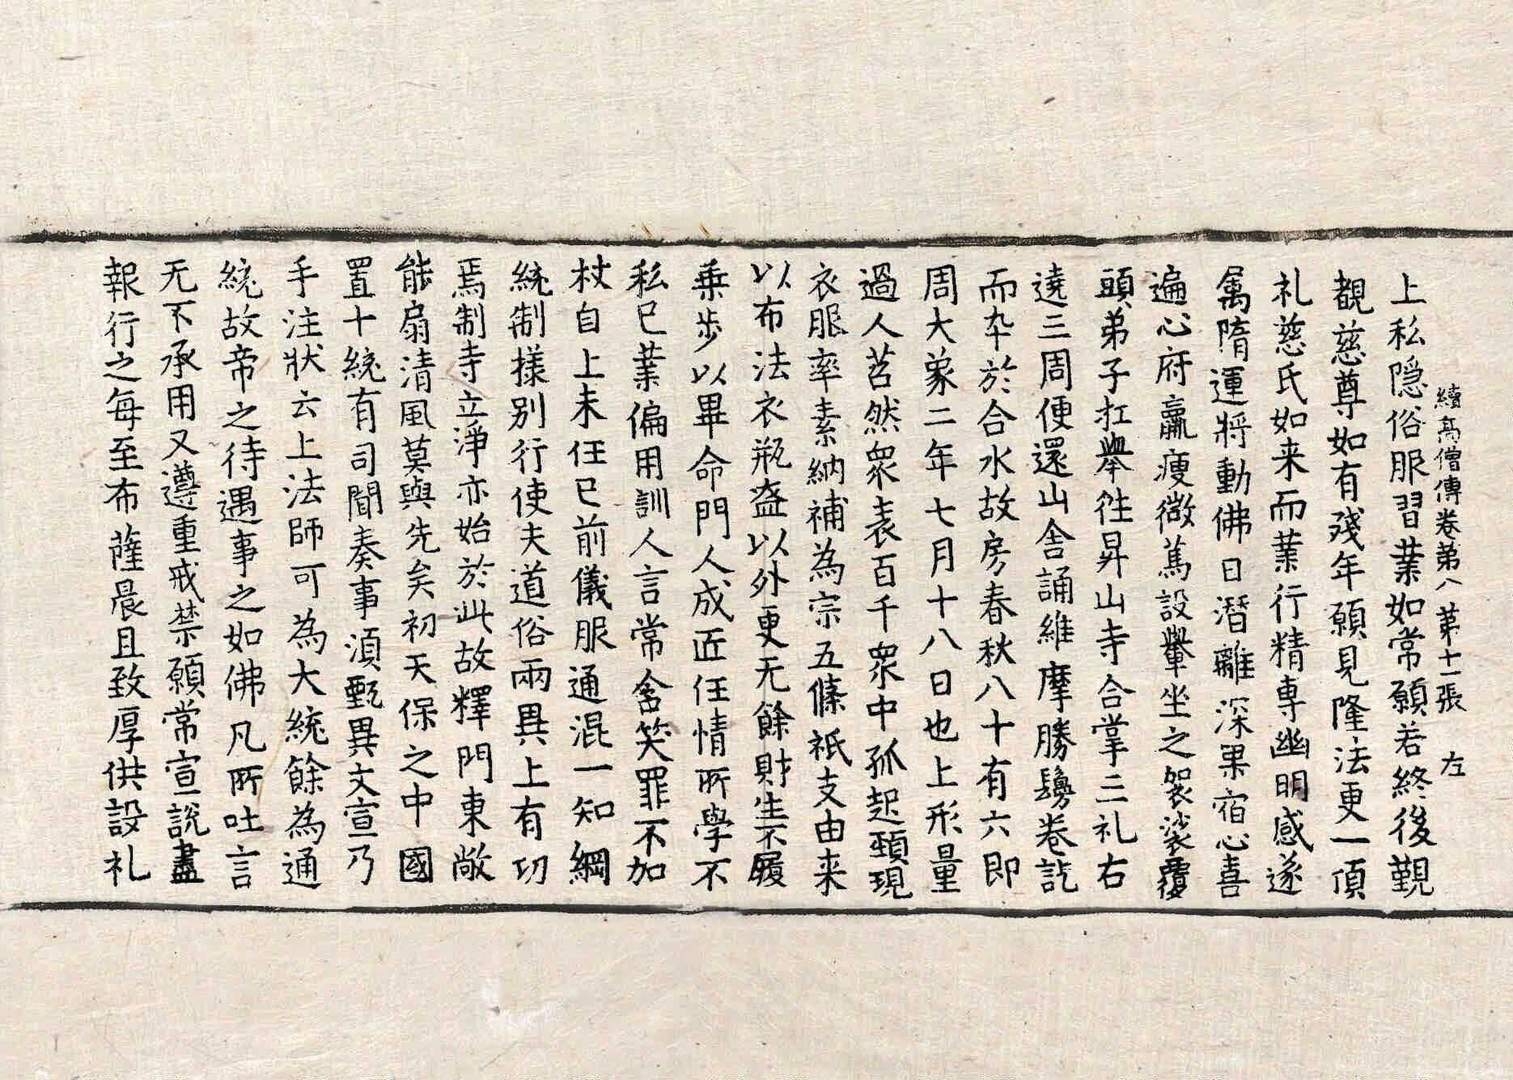 續高僧傳卷第八 第十一張 左
上私隱俗服習業如常願若終後覲
覩慈尊如有殘年願見隆法更一頂
礼慈氏如来而業行精專幽明感遂
属隋運將動佛日潜離深果宿心喜
遍心府羸瘦微篤設轝坐之袈裟覆
頭弟子扛轝徃昇山寺合掌三礼右
遶三周便還山舎誦維摩勝鬘卷訖
而卒於合水故房春秋八十有六即
周大象二年七月十八日也上形量
過人苕然衆表百千衆中孤起頸現
衣服率素納補為宗五條衹支由来
以布法衣瓶盔以外更无餘財生不履
乗步以畢命門人成匠任情所學不
私己業偏用訓人言常含笑罪不加
杖自上未任已前儀服通混一知綱
統制樣別行使夫道俗兩異上有功
焉制寺立淨亦始於此故釋門東敞
能扇清風莫與先矣初天保之中國
置十統有司聞奏事湏甄異文宣乃
手注狀云上法師可為大統餘為通
統故帝之待遇事之如佛凡所吐言
无不承用又遵重戒禁願常宣説盡
報行之每至布薩晨且致厚供設礼